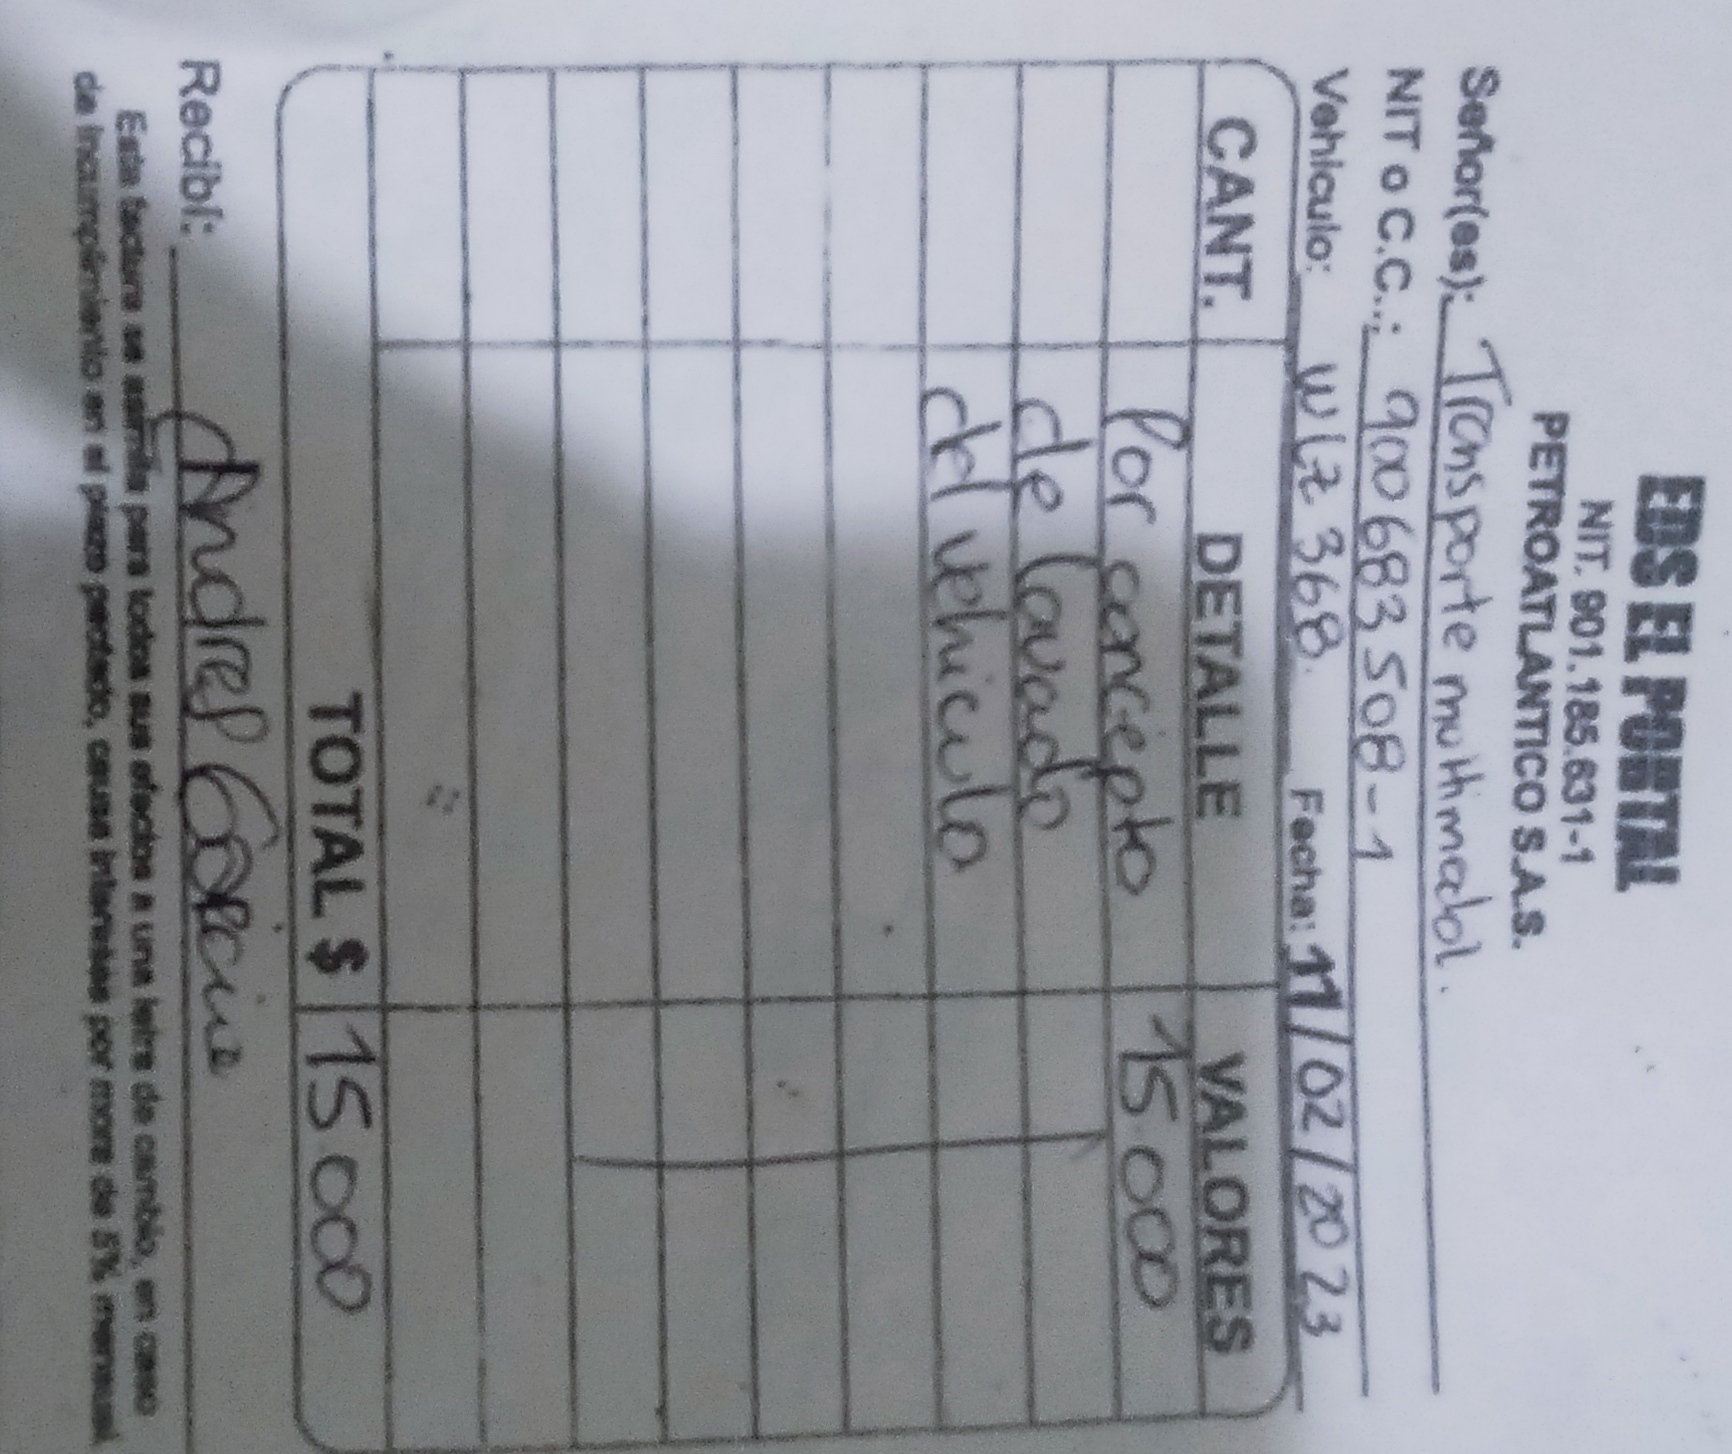 EDS EL PORTAL
NIT. 901.185.631-1
PETROATLANTICO S.A.S.
Señor(es): Transporte multimodal.
NIT o C.C.: 900683508-1
Vehiculo: WLZ 368. Fecha: 11/02/2023
CANT. DETALLE VALORES
Por concepto 15000
de lavado
del vehiculo
TOTAL $ 15000
Recibí: Andres
Esta factura se asimila para todos sus efectos a una letra de cambio, en caso
de incumplimiento en el plazo pactado, causa intereses por mora de 5% mensual.